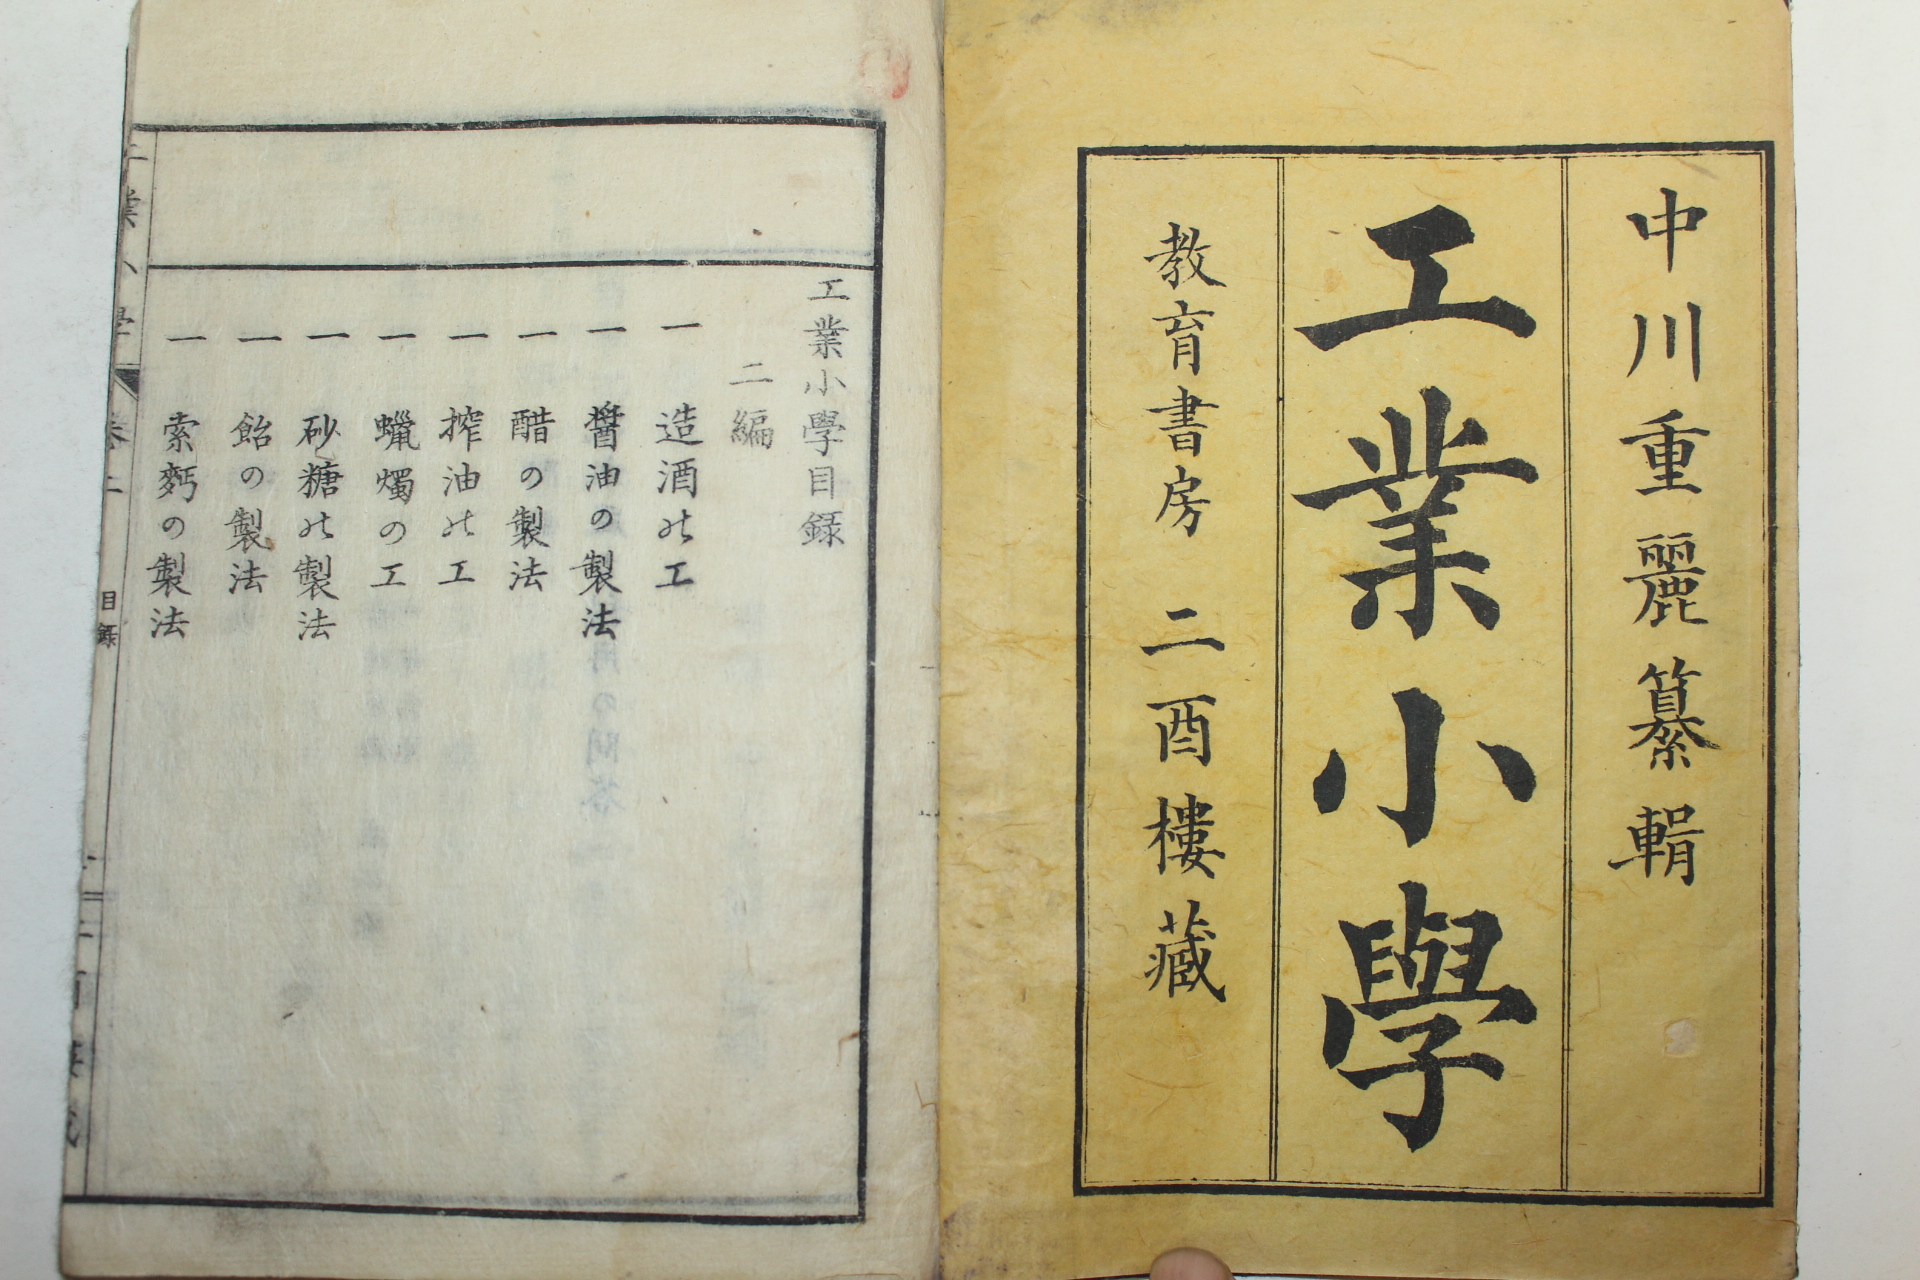 中川重麗纂輯
工業小學
教育書房 二酉樓藏
工業小學目録
二編
一 造酒の工
一 醤油の製法
一 醋の製法
一 搾油の工
一 蠟燭の工
一 砂糖の製法
一 飴の製法
一 索麪の製法
工業小學 卷二 目録